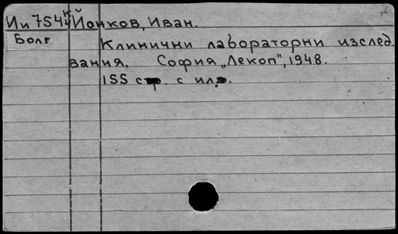 Ии7544 Йонков, Иван.
Болг Клинични лабораторни изслед.
вания. София „Лекоп", 1948.
155 стр. с ил.